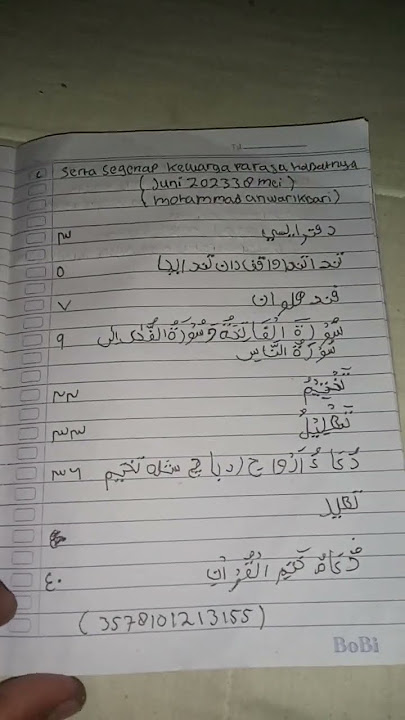 serta segenap keluarga para sahabatnya
(Juni 2023 30 mei)
(mohammad anwari koari)
دفتر ايسي ٣
تندا تندا وقف دان تندا بچا ٥
فندهلوان ٧
سُوْرَةُ الْفَاتِحَةُ وَسُوْرَةُ الضُّحَى الى ٩
سُوْرَةُ النَّاسِ
تَخْتِيْمٌ ٢٢
تَهْلِيْلٌ ٣٣
دُعَاءُ اَرْوَاحِ (دباچ ستله تختيم ٣٦
تهليل
دُعَاءُ خَتِيْم الْقُرْانِ ٤٠
(3578101213155)
BoBi